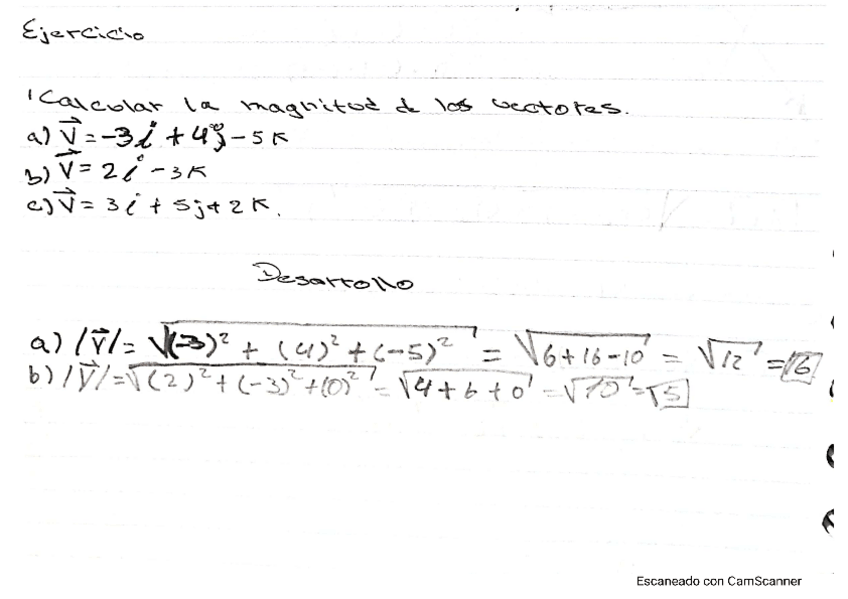 Ejercicio
1 Calcular la magnitud de los vectores.
a) V⃗ = -3i + 4j - 5k
b) V⃗ = 2i - 3k
c) V⃗ = 3i + 5j + 2k.
Desarrollo
a) |V⃗| = √((-3)² + (4)² + (-5)²) = √(6+16-10) = √12 = √6
b) |V⃗| = √((2)² + (-3)² + (0)²) = √(4+6+0) = √10 = √5
Escaneado con CamScanner